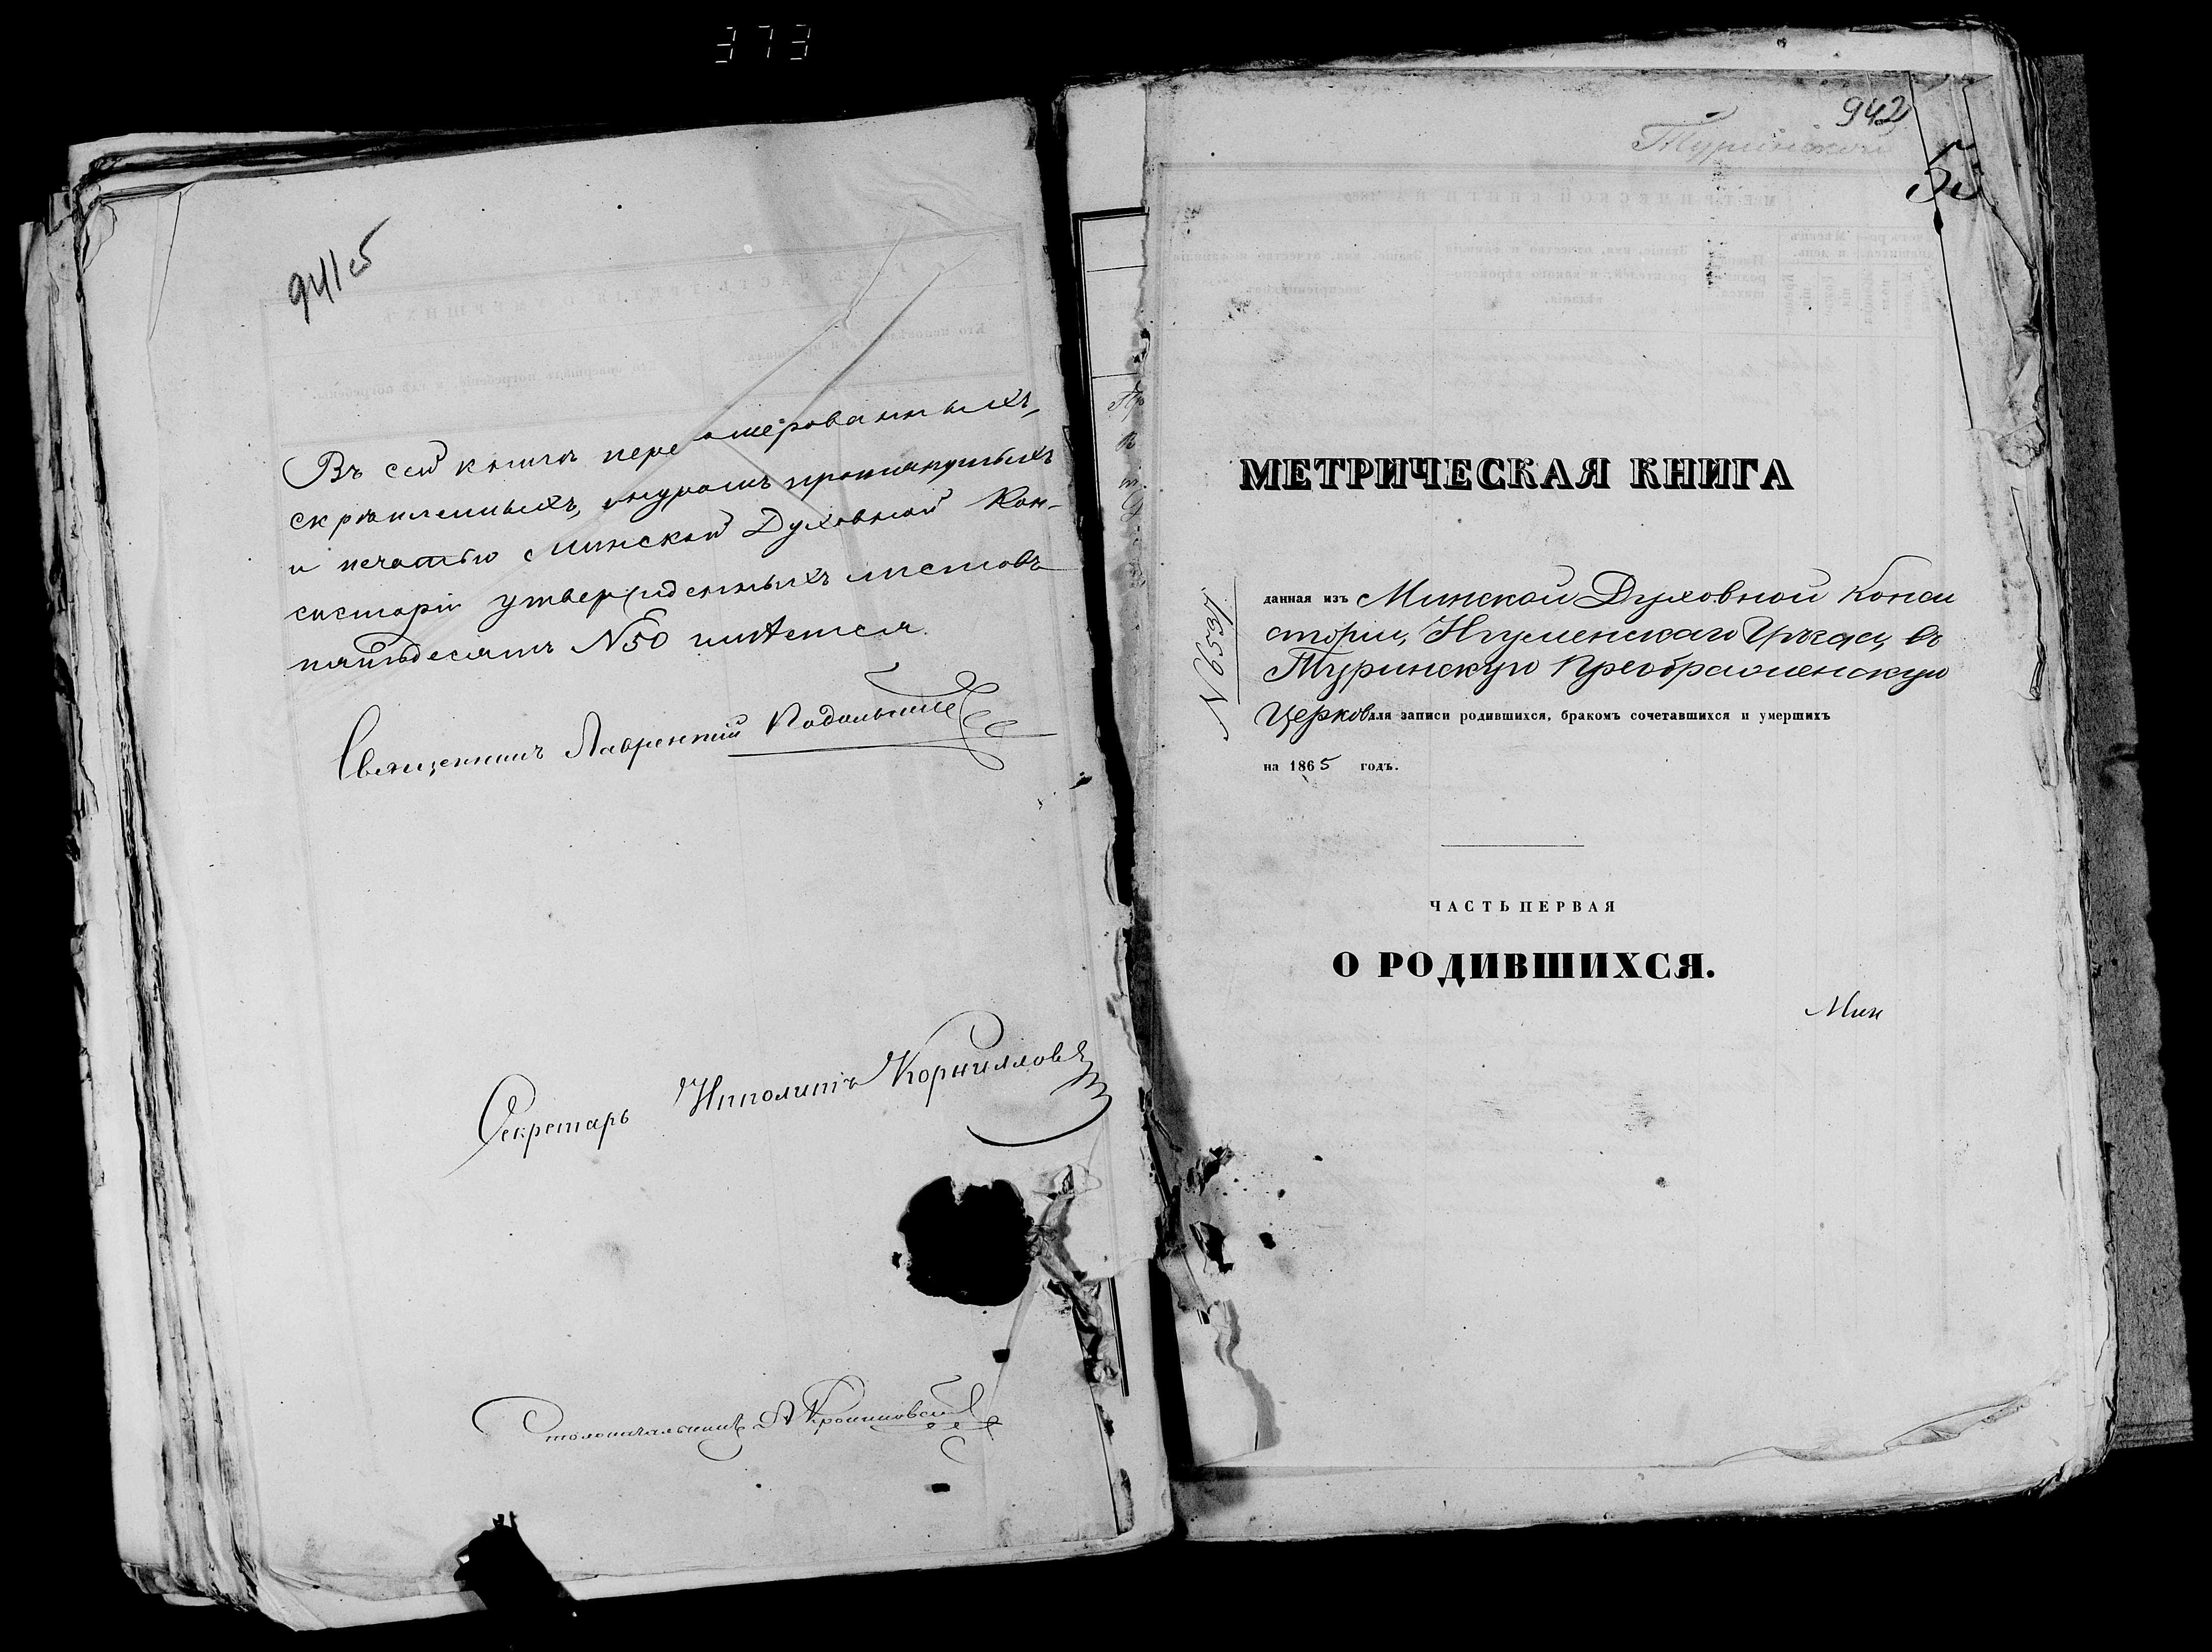 373
941 об
Въ сей книгѣ перенумерованныхъ,
скрѣпленныхъ, шнуромъ протянутыхъ
и печатью Минской Духовной Кон-
систоріи утвержденныхъ листовъ
пятьдесятъ №50 имѣется.
Священникъ Лаврентій
Секретарь Ипполитъ Корниловъ
Столоначальникъ
942
Туринской
МЕТРИЧЕСКАЯ КНИГА
№ 6537
данная изъ Минской Духовной Конси
сторіи, Игуменскаго Уѣзда, въ
Туринскую Преображенскую
Церковь для записи родившихся, бракомъ сочетавшихся и умершихъ
на 1865 годъ.
ЧАСТЬ ПЕРВАЯ
О РОДИВШИХСЯ.
Мин